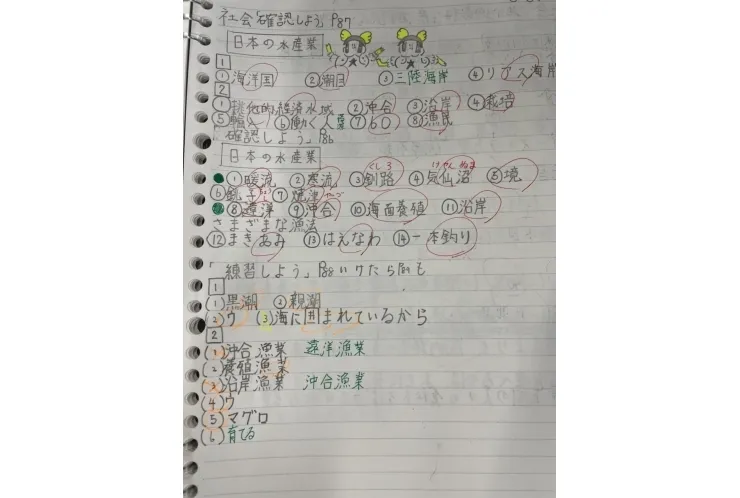 社会 確認しよう P87
日本の水産業
1
①海洋国 ②潮目 ③三陸海岸 ④リアス海岸
2
①排他的経済水域 ②沖合 ③沿岸 ④栽培
⑤輸入 ⑥働く人 ⑦60 ⑧漁民
「確認しよう」P86
日本の水産業
くしろ けせんぬま
①暖流 ②寒流 ③釧路 ④気仙沼 ⑤境
⑥銚子 ⑦焼津
⑧遠洋 ⑨沖合 ⑩海面養殖 ⑪沿岸
さまざまな漁法
⑫まきあみ ⑬はえなわ ⑭一本釣り
「練習しよう」P88 いけたらP89も
1
(1)黒潮 ②親潮
(2)ウ (3)海に囲まれているから
2
(1)沖合漁業 遠洋漁業
(2)養殖漁業
(3)沿岸漁業 沖合漁業
(4)ウ
(5)マグロ
(6)育てる